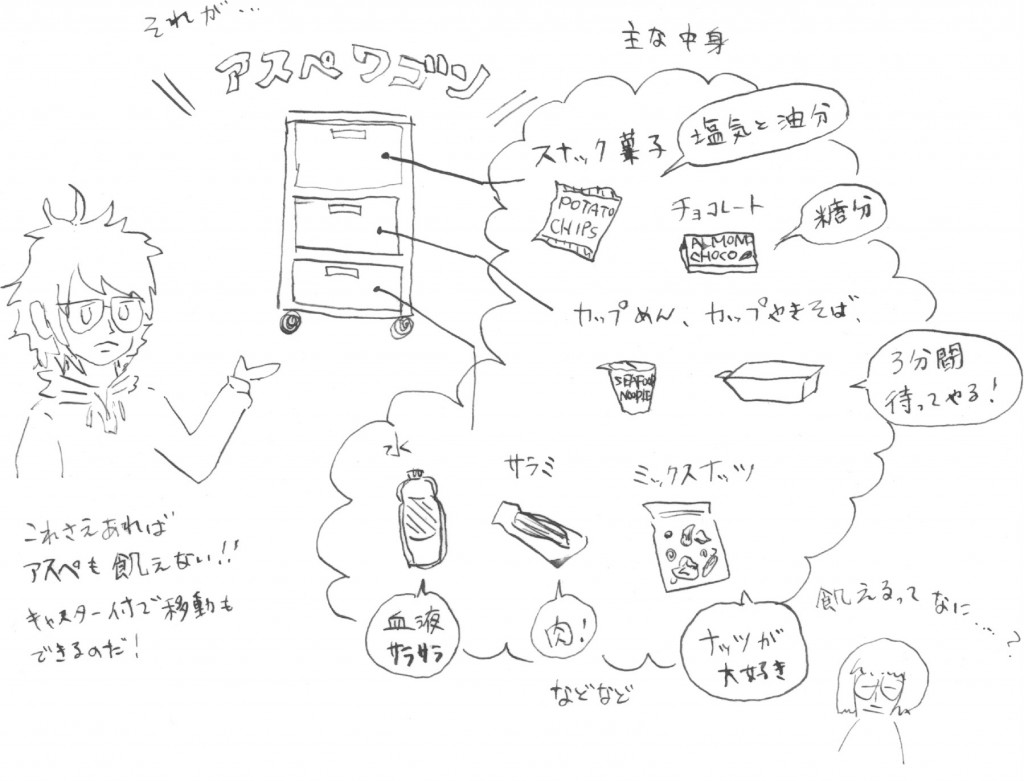 それが…
アスペワゴン
主な中身
スナック菓子
塩気と油分
POTATO
CHIPS
チョコレート
糖分
ALMOND
CHOCO
カップめん、カップやきそば、
SEAFOOD
NOODLE
3分間
待ってやる!
水
サラミ
ミックスナッツ
血液
サラサラ
肉!
ナッツが
大好き
などなど
これさえあれば
アスペも飢えない!!
キャスター付で移動も
できるのだ!
飢えるってなに……?